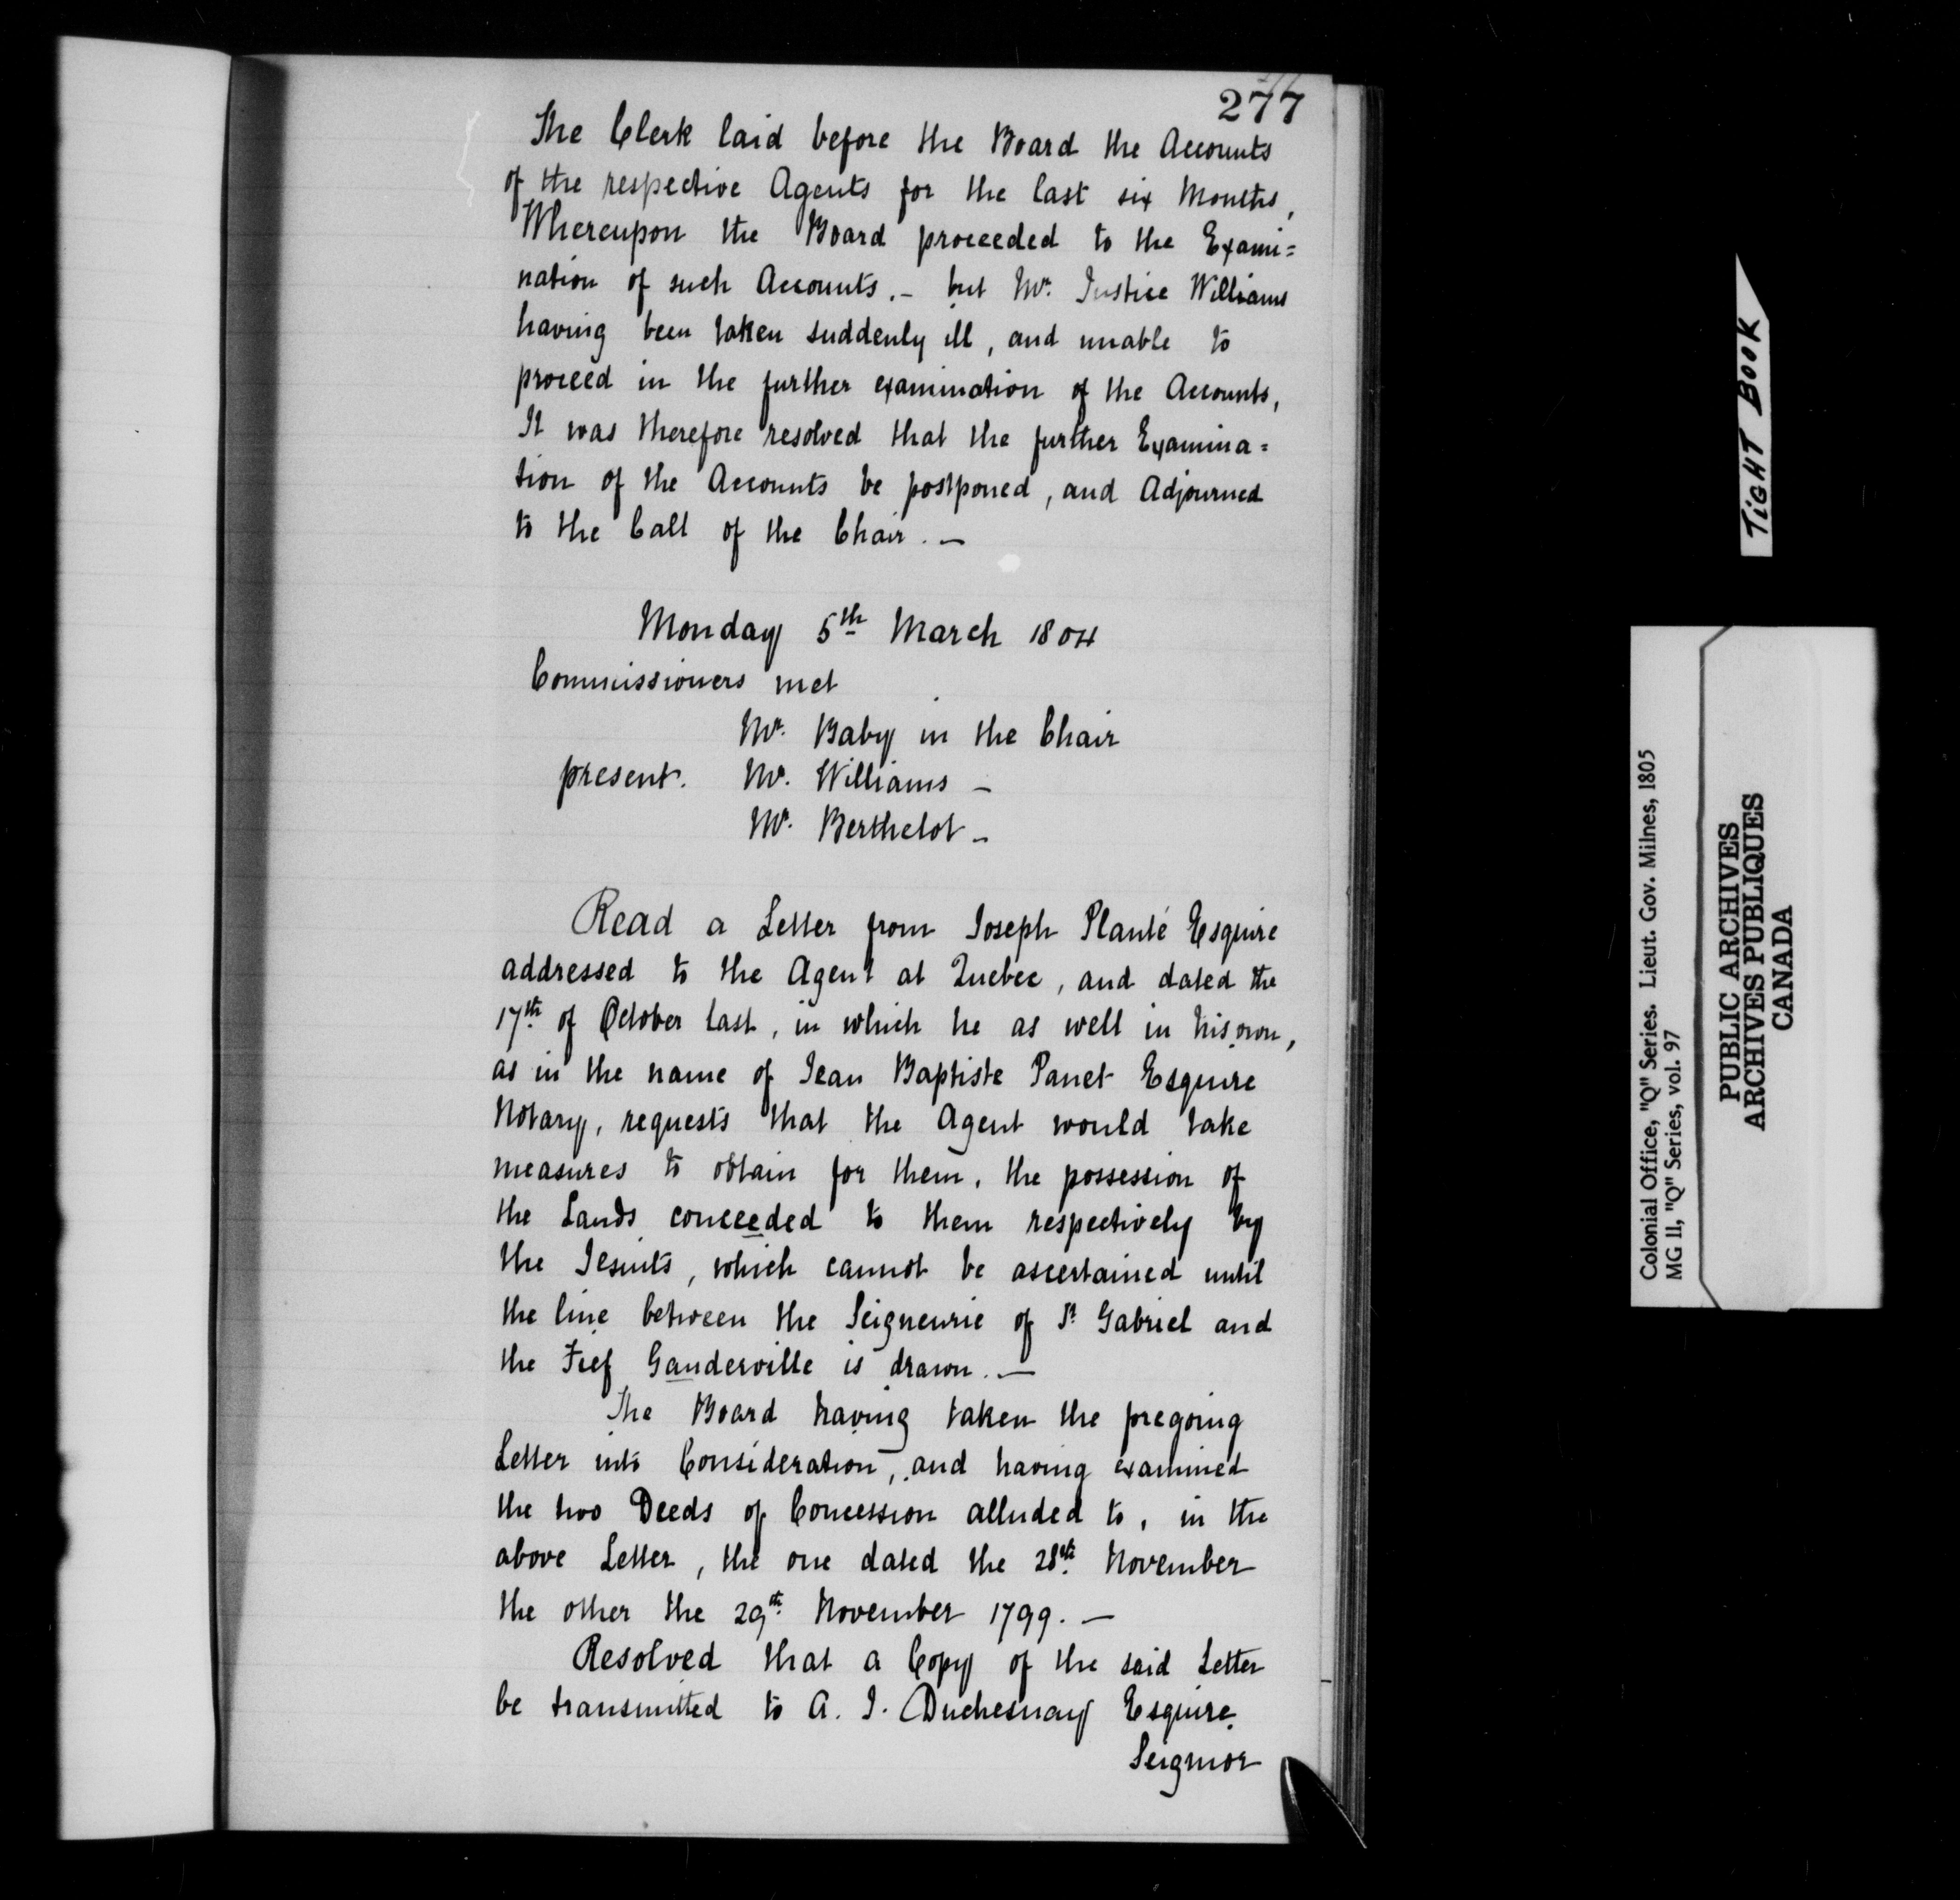 277
The Clerk laid before the Board the Accounts
of the respective Agents for the last six Months,
Whereupon the Board proceeded to the Exami=
nation of such Accounts. – but Mr. Justice Williams
having been taken suddenly ill, and unable to
proceed in the further examination of the Accounts,
It was therefore resolved that the further Examina=
tion of the Accounts be postponed, and Adjourned
to the Call of the Chair. –
Monday 5th March 1804
Commissioners met
Mr. Baby in the Chair
present. Mr. Williams –
Mr. Berthelot –
Read a Letter from Joseph Planté Esquire
addressed to the Agent at Quebec, and dated the
17th of October last, in which he as well in his own,
as in the name of Jean Baptiste Panet Esquire
Notary, requests that the Agent would take
measures to obtain for them, the possession of
the Lands conceeded to them respectively by
the Jesuits, which cannot be ascertained until
the line between the Seigneurie of St Gabriel and
the Fief Ganderville is drawn. —
The Board having taken the foregoing
Letter into Consideration, and having examined
the two Deeds of Concession alluded to, in the
above Letter, the one dated the 28th November
the other the 29th November 1799. —
Resolved that a Copy of the said Letter
be transmitted to A. J. Duchesnay Esquire
Seignior
TIGHT BOOK
Colonial Office, "Q" Series. Lieut. Gov. Milnes, 1805
MG 11, "Q" Series, vol. 97
PUBLIC ARCHIVES
ARCHIVES PUBLIQUES
CANADA